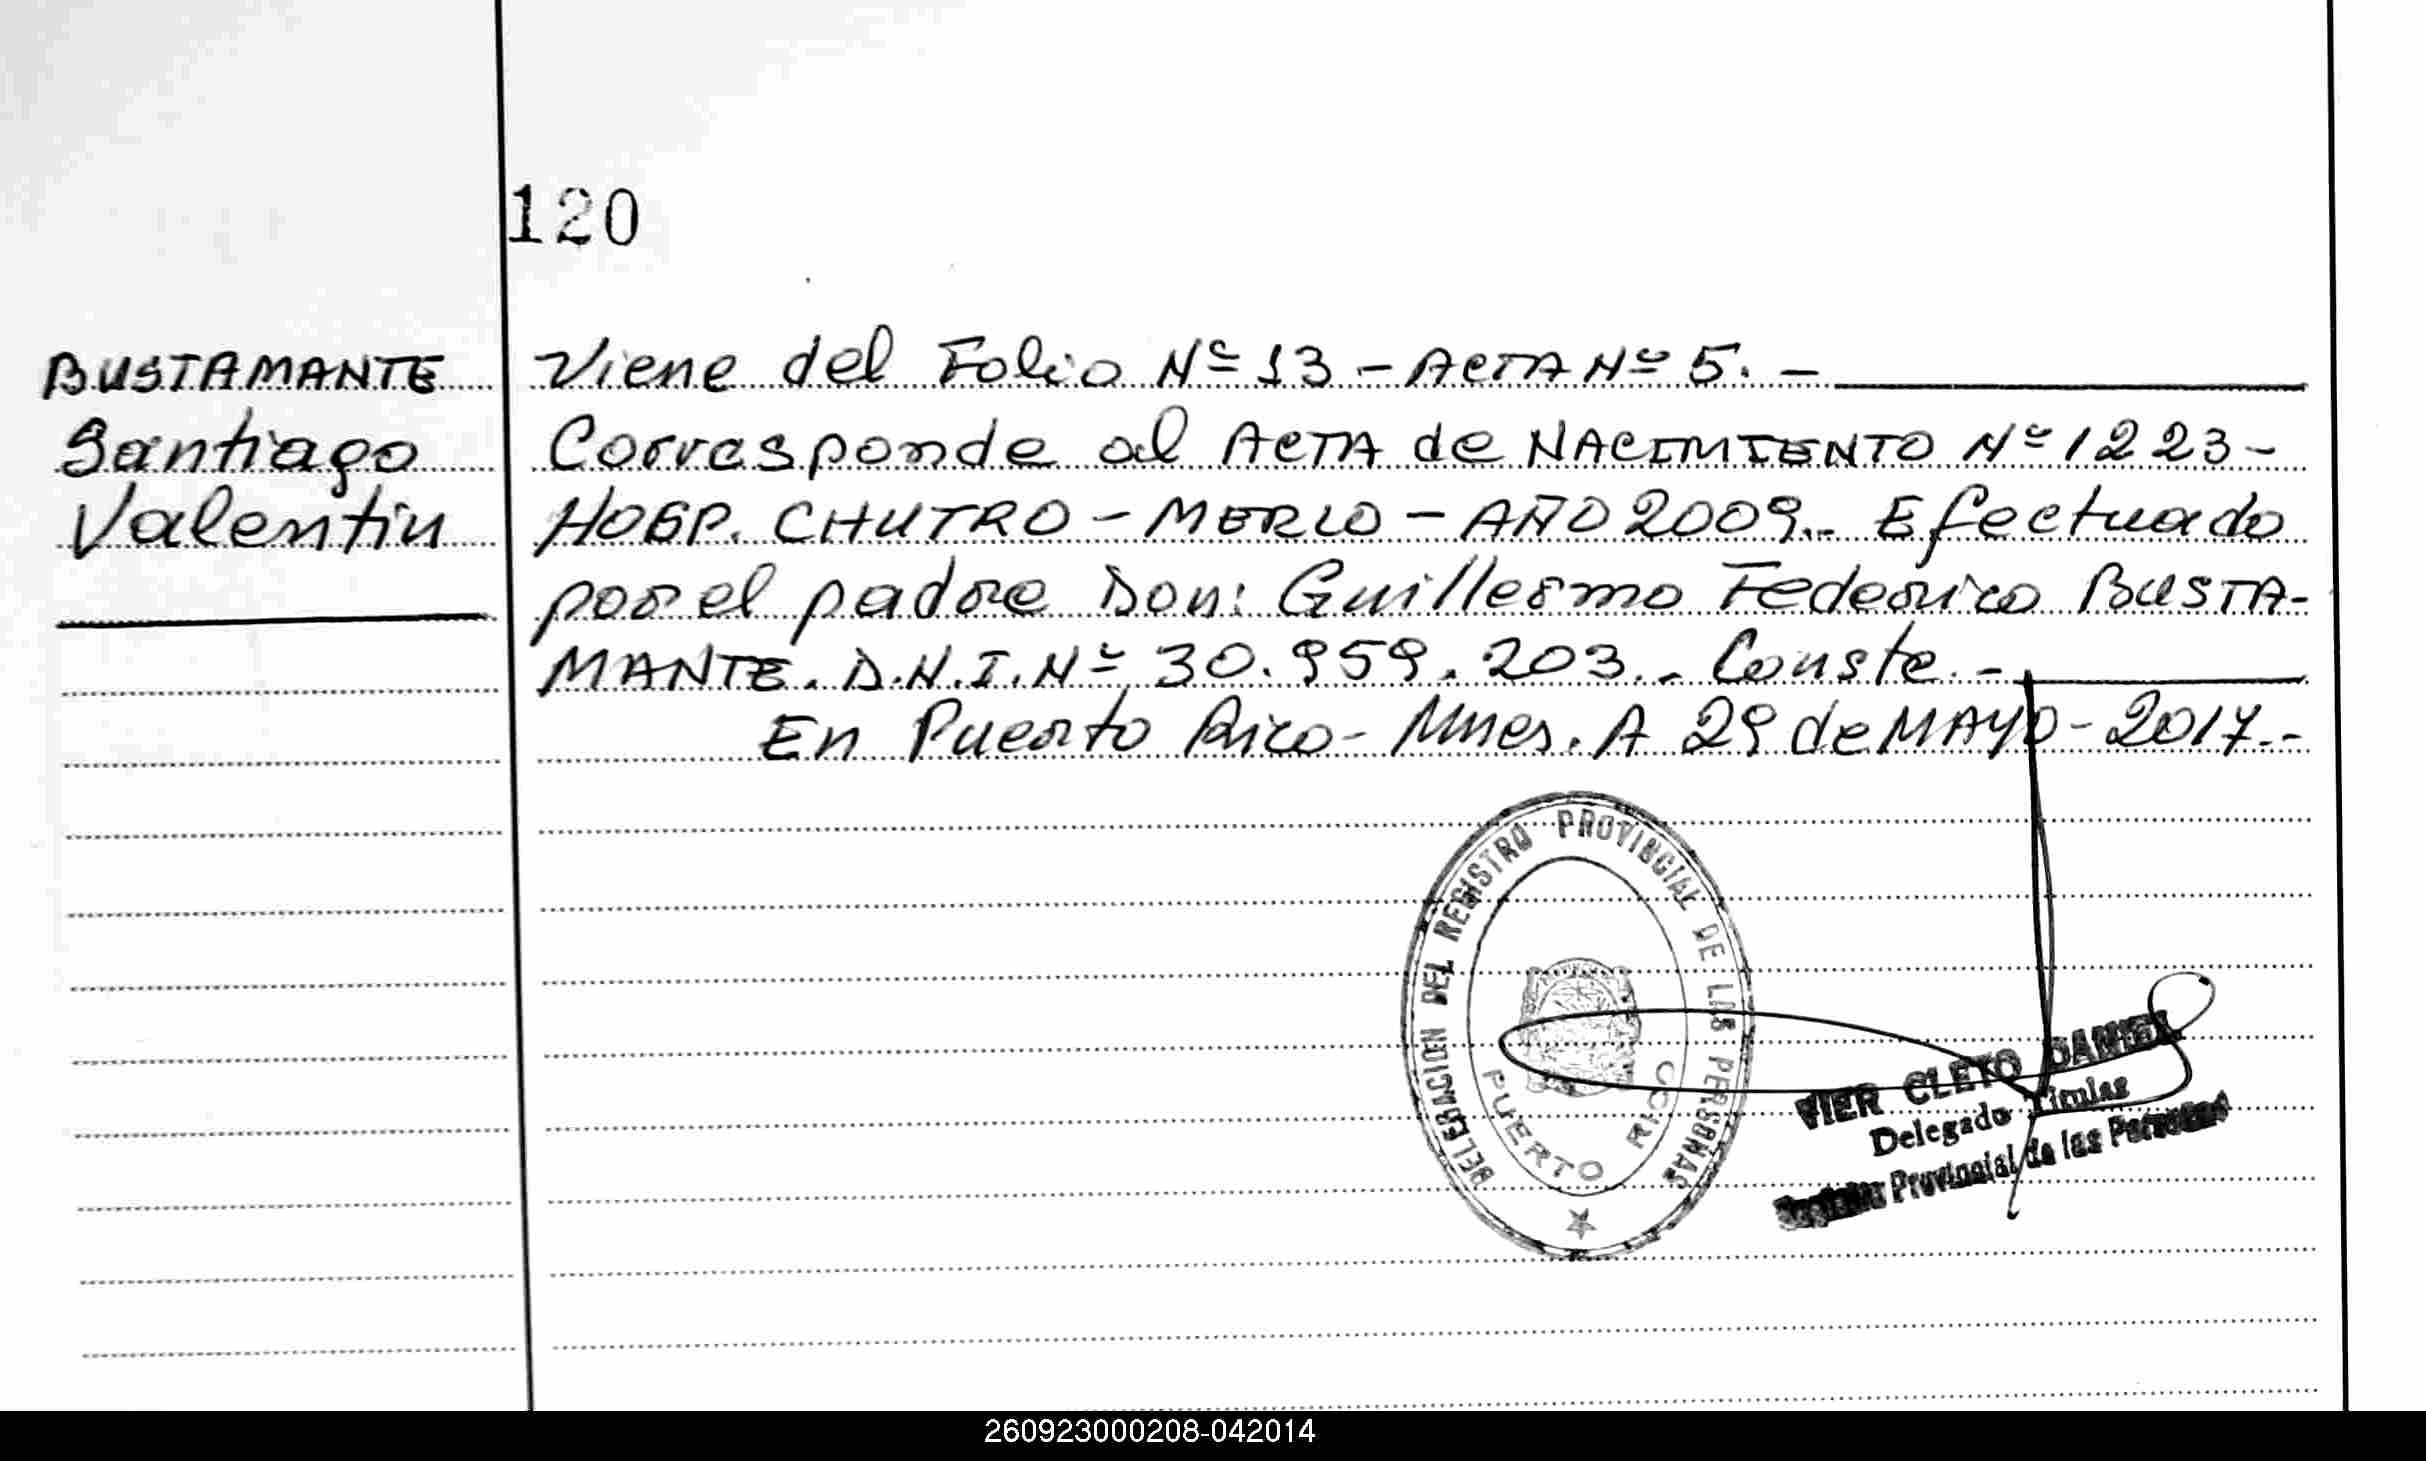 120
BUSTAMANTE
Santiago
Valentin
Viene del Folio Nº 13 - ACTA Nº 5. -
Corresponde al ACTA de NACIMIENTO Nº 1223-
HOSP. CHUTRO - MERLO - AÑO 2009.- Efectuado
por el padre Don: Guillermo Federico BUSTA-
MANTE. D.N.I. Nº 30.959.203.- Conste.-
En Puerto Rico - Mnes. A 29 de MAYO - 2017.-
DELEGACION DEL REGISTRO PROVINCIAL DE LAS PERSONAS
PUERTO RICO
VIER CLETO DANIEL
Delegado Titular
Provincial de las Personas
260923000208-042014